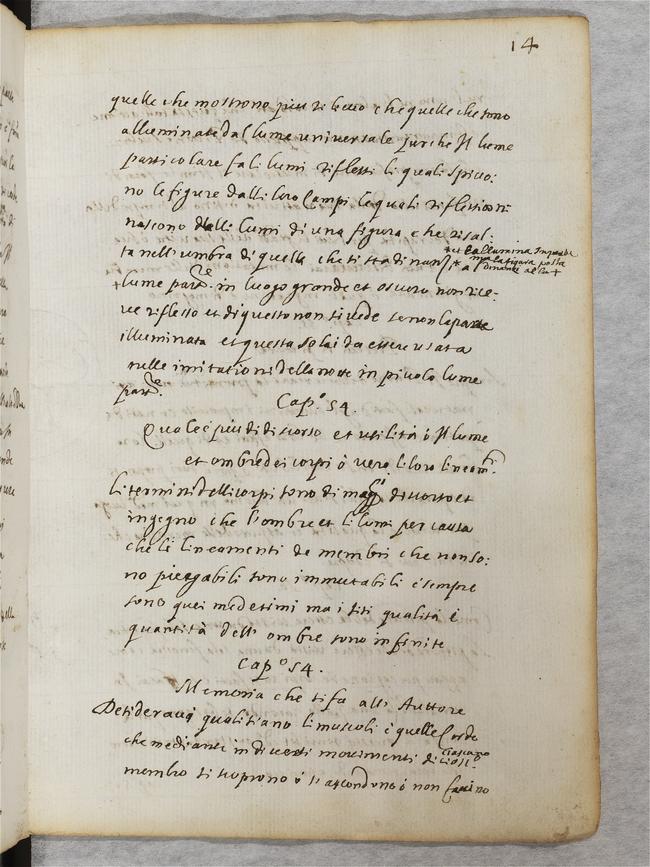 14
quelle che mostrono piu rilevo che quelle che sono
alluminate dal lume universale perche Il lume
particolare fa li lumi riflessi li quali spicco:
no le figure dalli loro Campi le quali riflessioni
nascono dalli lumi di una figura che risal:
ta nell'umbra di quella che ti sta dinanzi
et allumina In parte
ma la figura posta
dinante al lu+
+lume part.re in luogo grande et oscuro non rice:
ve riflesso et di questo non si vede se non la parte
illuminata et questa solo è da essere usata
nelle imitationi della notte in picolo lume
part.re
Cap.o 54.
Quale è piu di discorso et utilità ò Il lume
et ombre dei corpi ò vero li loro lineam.ti
li termini delli corpi sono di mag.r discorso et
ingegno che l'ombre et li lumi per causa
che li lineamenti de membri che non so:
no piegabili sono immutabili e sempre
sono quei medesimi ma i siti qualità e
quantità dell' ombre sono infinite
Cap.o 54.
Memoria che si fa all' Auttore
Descriverai quali siano li muscoli e quelle Corde
che mediante in diversi movimenti di ciascuno
membro si scoprono ò si ascondono ò non faccino